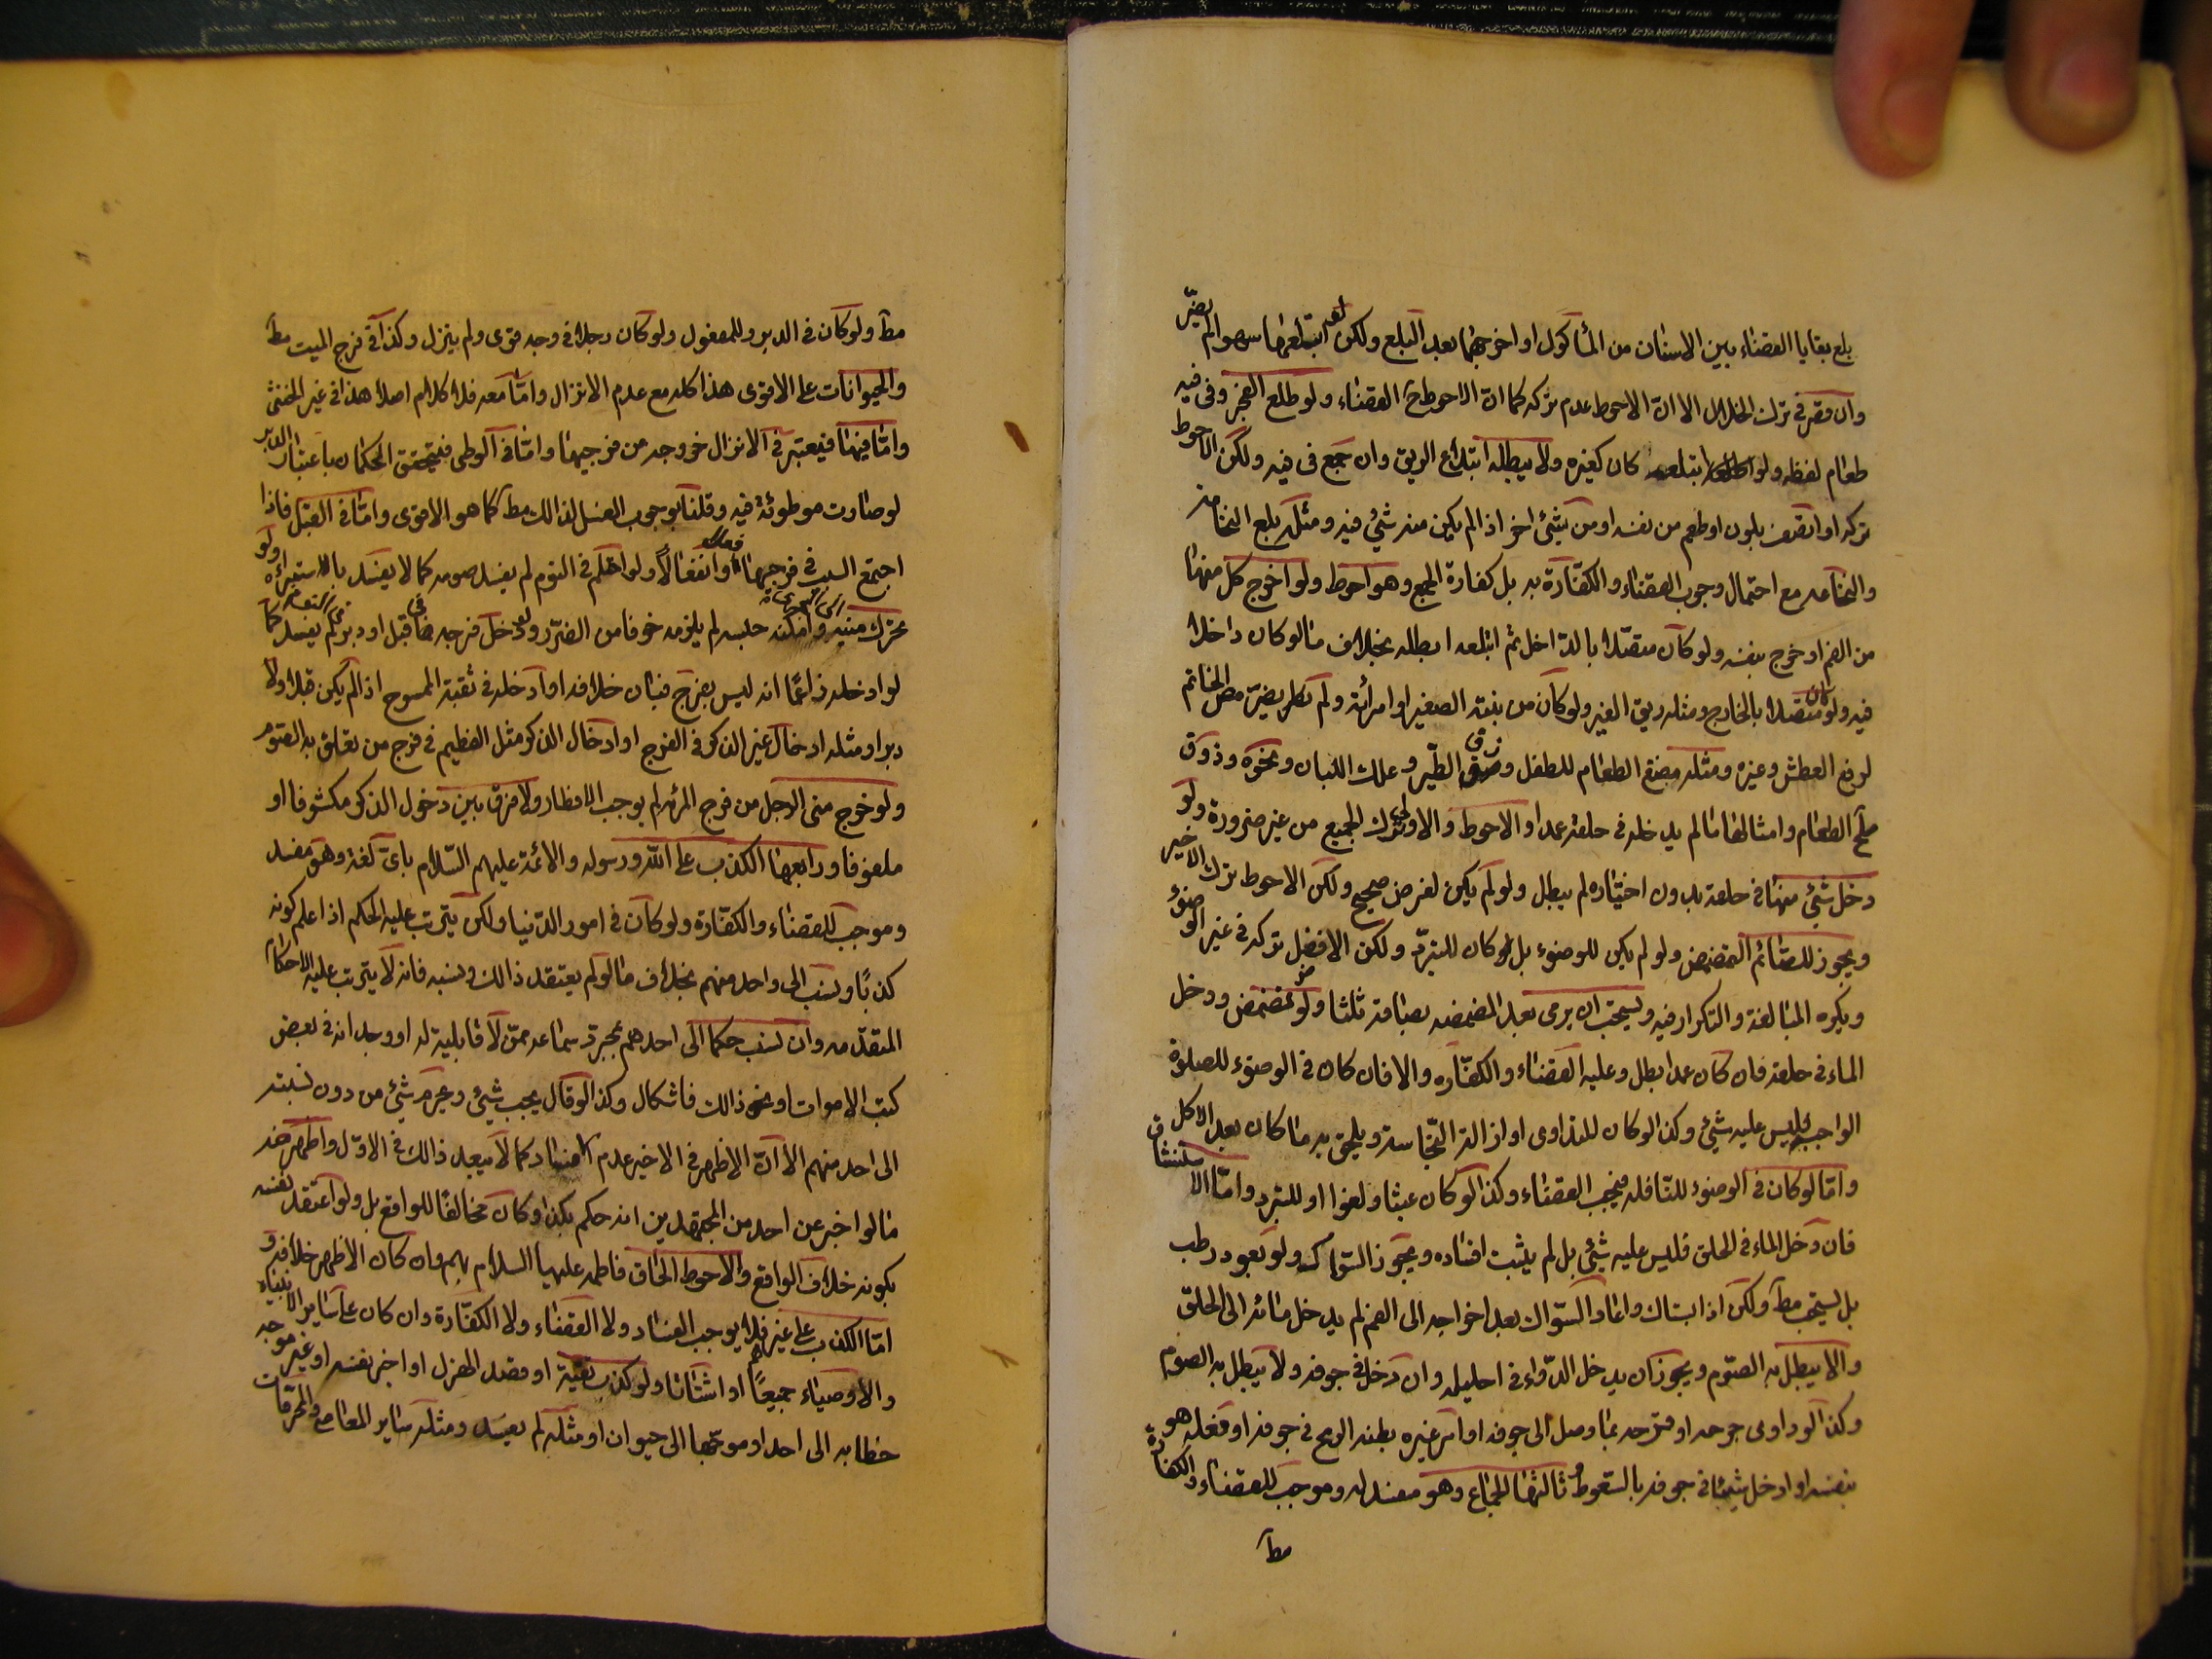 بلع بقايا الغذاء بين الاسنان من المأكول او اخرجها بعد البلع ولكن لو ابتلعها سهوا لم يضرّ
وان قصّر في ترك الخلال الا انّ الاحوط عدم تركه كما انّ الاحوط ح القضاء ولو طلع الفجر وفى فيه
طعام لفظه ولو ابتلعه كان كغيره ولا يبطله ابتلاع الريق وان جمع فى فيه ولكن الاحوط
تركه او اتّصف بلون او طعم من نفسه او من شيئ اخر اذا لم يكن منه شيئ فيه ومثله بلع النخامة
والنخاعه مع احتمال وجوب القضاء والكفّارة به بل كفارة الجمع وهو احوط ولو اخرج كل منهما
من الفم او خرج بنفسه ولو كان متّصلا بالداخل ثم ابتلعه ابطله بخلاف ما لو كان داخلا
فيه ولو كان متّصلا بالخارج ومثله ريق الغير ولو كان من بنته الصغير او امرأته ولم يكن يضرّ مصّ الخاتم
لرفع العطش وغيره ومثله مضغ الطعام للطفل وزق الطّير وعلك اللبان ونحوه وذوق
ملح الطعام وامثالها ما لم يدخله في حلقه عمدا والاحوط والاولى ترك الجميع من غير ضرورة ولو
دخل شيئ منها في حلقه بدون اختياره لم يبطل ولو لم يكن لغرض صحيح ولكن الاحوط ترك الاخير
ويجوز للصّائم التمضمض ولو لم يكن للوضوء بل لو كان للتبرّد ولكن الافضل تركه في غير الوضوء
ويكره المبالغة والتكرار فيه ويستحب ان يرمى بعد المضمضه بصاقه ثلثا ولو تمضمض ودخل
الماء في حلقه فان كان عمدا بطل وعليه القضاء والكفّاره والا فان كان في الوضوء للصلوة
الواجبه فليس عليه شيئ وكذا لو كان للتداوى او ازالة النّجاسة ويلحق به ما كان بعد الاكل
وامّا لو كان في الوضوء للنّافله فيجب القضاء وكذا لو كان عبثا ولغوا او للتبرد وامّا الاستنشاق
فان دخل الماء في الحلق فليس عليه شيئ بل لم يثبت افساده ويجوز السّواك ولو بعود رطب
بل يستحب مطَ ولكن اذا استاك واعاد السّواك بعد اخراجه الى الفم لم يدخل مائه الى الحلق
والا يبطل به الصّوم ويجوز ان يدخل الدّواء في احليله وان دخل في جوفه ولا يبطل به الصوم
وكذا لو داوى جرحه او قرحه بما وصل الى جوفه او امر غيره بطعنه الرمح في جوفه او فعله هو
بنفسه او ادخل شيئا في جوفه بالسّعوط وثالثها الجماع وهو مفسد له وموجب للقضاء والكفارة
مطَ
مطَ ولو كان في الدبر وللمفعول ولو كان رجلا في وجه قوى ولم ينزل وكذا في فرج الميت مطَ
والحيوانات على الاقوى هذا كله مع عدم الانزال وامّا معه فلا كلام اصلا هذا في غير الخنثى
وامّا فيها فيعتبر في الانزال خروجه من فرجيها وامّا في الوطى فيتحقق الحكمان باعتبار الدبر
لو صارت موطوئة فيه وقلنا بوجوب الغسل لذالك مطَ كما هو الاقوى وامّا في القبل فاذا
اجتمع السبب في فرجيها او انفعالا ولو احتلم في النوم لم يفسد صومه كما لا يفسد بالاستبراء ولو
تحرّك منيه وامكنه حبسه لم يلزمه خوفا من الضّرر ولو دخل فرجه في قبل او دبر لم يفسد كما
لو ادخله زاعمًا انه ليس بفرج فبان خلافه او ادخله في ثقبة الممسوح اذا لم يكن قبلا ولا
دبرا ومثله ادخال غير الذكر في الفرج او ادخال الذكر مثل الفطيم في فرج من تعلق به الصّوم
ولو خرج منى الرجل من فرج المرئه لم يوجب الافطار ولا فرق بين دخول الذكر مكشوفا او
ملفوفا ورابعها الكذب على اللّه ورسوله والائمّة عليهم السّلام باىّ لغة وهو مفسد
وموجب للقضاء والكفّارة ولو كان في امور الدّنيا ولكن يترتب عليه الحكم اذا علم كونه
كذبًا ونسب الى واحد منهم بخلاف ما لو لم يعتقد ذالك ونسبه فانه لا يترتب عليه الاحكام
المتقدّمه وان نسب حكما الى احدهم بمجرّد سماعه ممّن لا قابلية له او وجد انه في بعض
كتب الاموات او نحو ذالك فاشكال وكذا لو قال يجب شيئ ويحرم شيئ من دون نسبته
الى احد منهم الا انّ الاظهر في الاخير عدم الافساد كما لا يبعد ذالك في الاوّل واظهر منه
ما لو اخبر عن احد من المجتهدين انه حكم بكذا وكان مخالفًا للواقع بل ولو اعتقد بنفسه
بكونه خلاف الواقع والاحوط الحاق فاطمه عليها السلام بهم وان كان الاظهر خلافه و
امّا الكذب على غيرهم فلا يوجب الفساد ولا القضاء ولا الكفّارة وان كان على سائر الانبياء
والاوصياء جميعًا او اشتاتا ولو كذب تقيّة او قصد الهزل او اخبر بنفسه او غير موجه
خطابه الى احد او موجّها الى حيوان او مثله لم يفسد ومثله سائر المعاصى والمحرّمات